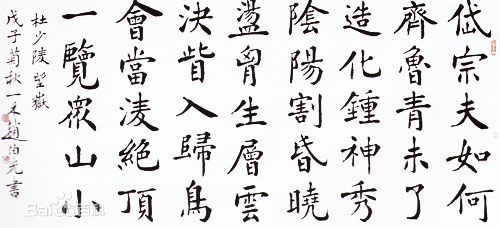 岱宗夫如何
齊魯青未了
造化鍾神秀
陰陽割昏曉
盪胷生層雲
決眥入歸鳥
會當淩絕頂
一覽眾山小
杜少陵 望嶽
戊子菊秋一禾趙伯光書
Baidu百科